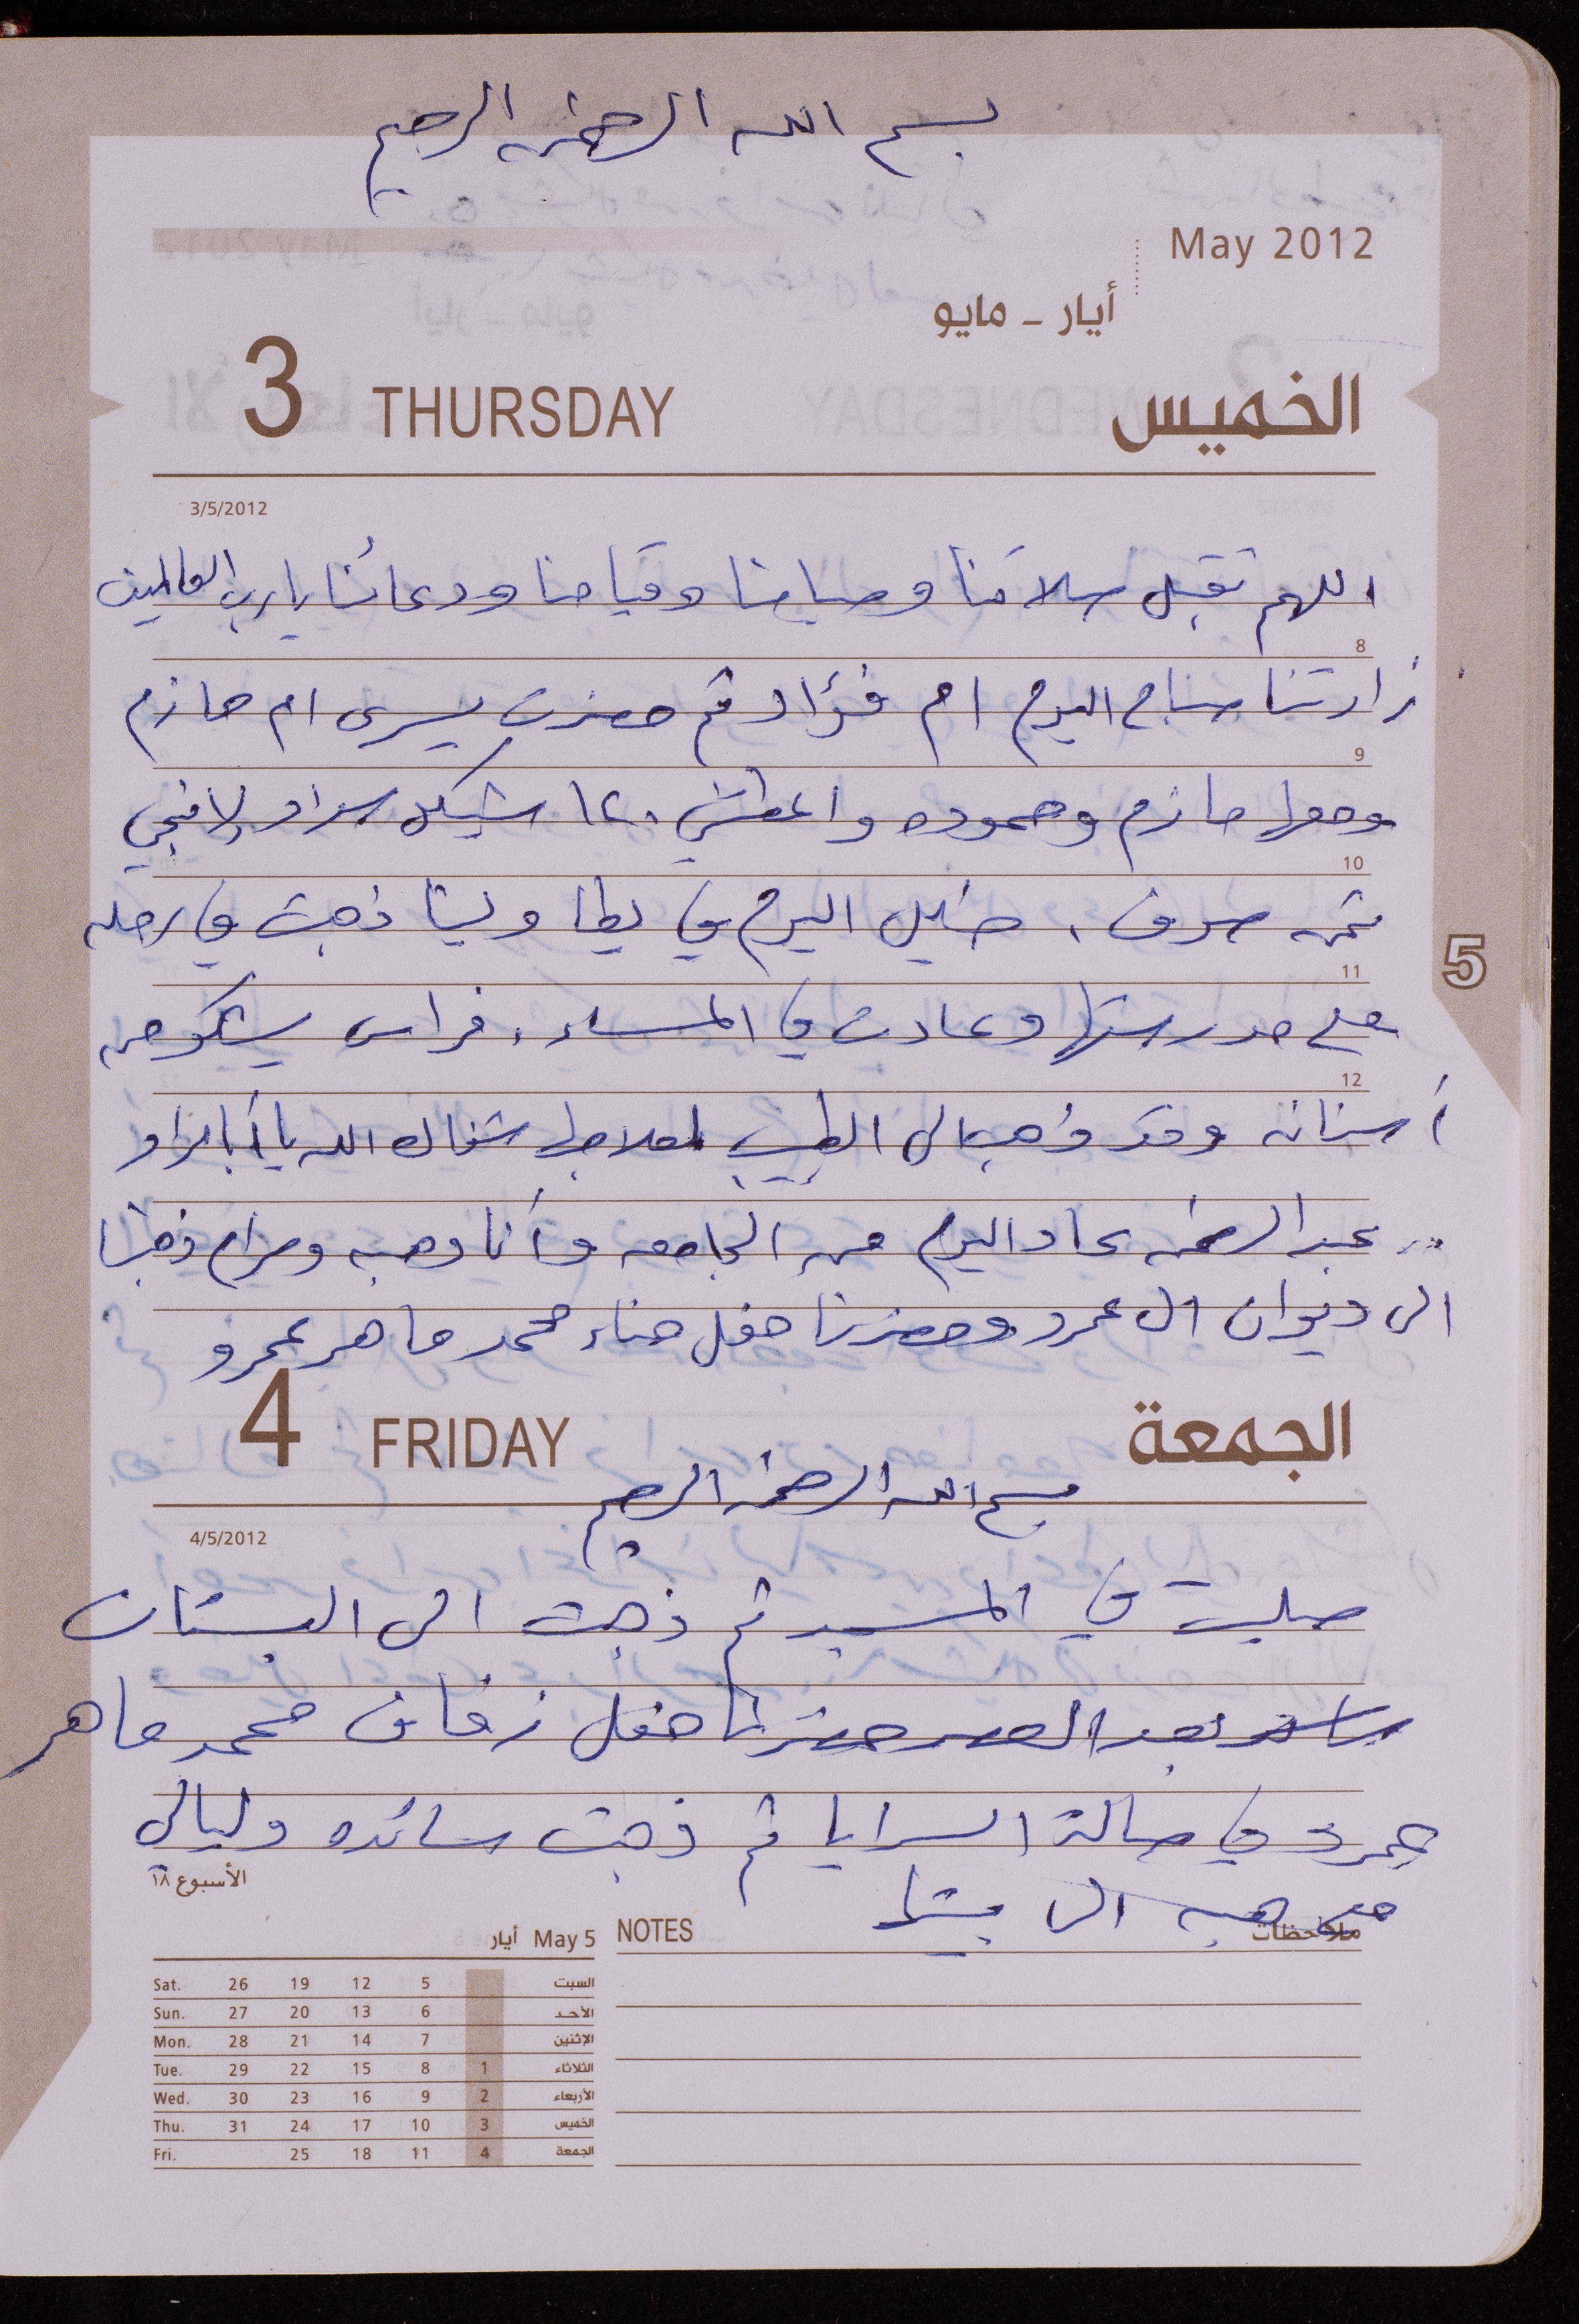 بسم الله الرحمن الرحيم
May 2012
أيار - مايو
3 THURSDAY الخميس
3/5/2012
اللهم تقبل صلاتنا وصيامنا وقيامنا ودعائنا يا رب العالمين
8
زارتنا صباح اليوم ام فؤاد ثم حضرت يسرى ام حازم
9
ومعها حازم وحموده واعطتني ١٢٠ شيكل سداد
10
ثمن صوف . خليل اليوم في يطا ولينا ذهبت في رحله
11
مع مدرستها وعادت في المساء . فراس يشكو من
12
أسنانه وقد ذهب الى الطبيب لعلاجها شفاك الله يا أبا
عبد الرحمن عاد اليوم من الجامعه وأنا وهبه ومرام ذهبنا
الى ديوان ال عمرو وحضرنا حفل حناء محمد ماهر عمرو
5
4 FRIDAY الجمعة
بسم الله الرحمن الرحيم
4/5/2012
صليت في المسجد ثم ذهبت الى البستان
بعد العصر حضرنا حفل زفاف محمد ماهر
عمرو في صالة السرايا ثم ذهبت سائده وليالي
الأسبوع ١٨
مع هبه الى بيتها
NOTES ملاحظات
May 5 أيار
Sat. 26 19 12 5 السبت
Sun. 27 20 13 6 الأحد
Mon. 28 21 14 7 الإثنين
Tue. 29 22 15 8 1 الثلاثاء
Wed. 30 23 16 9 2 الأربعاء
Thu. 31 24 17 10 3 الخميس
Fri. 25 18 11 4 الجمعة